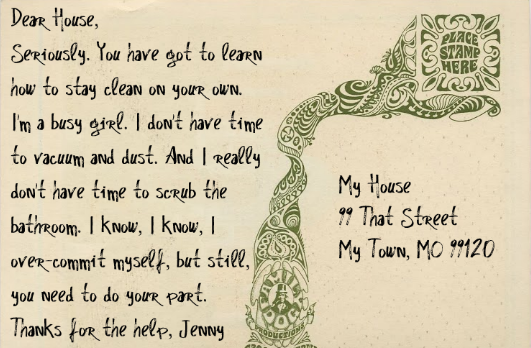 Dear House,
Seriously. You have got to learn
how to stay clean on your own.
I'm a busy girl. I don't have time
to vacuum and dust. And I really
don't have time to scrub the
bathroom. I know, I know, I
over-commit myself, but still,
you need to do your part.
Thanks for the help, Jenny
PLACE
STAMP
HERE
My House
99 That Street
My Town, MO 99120
FAMILY DOG
PRODUCTIONS